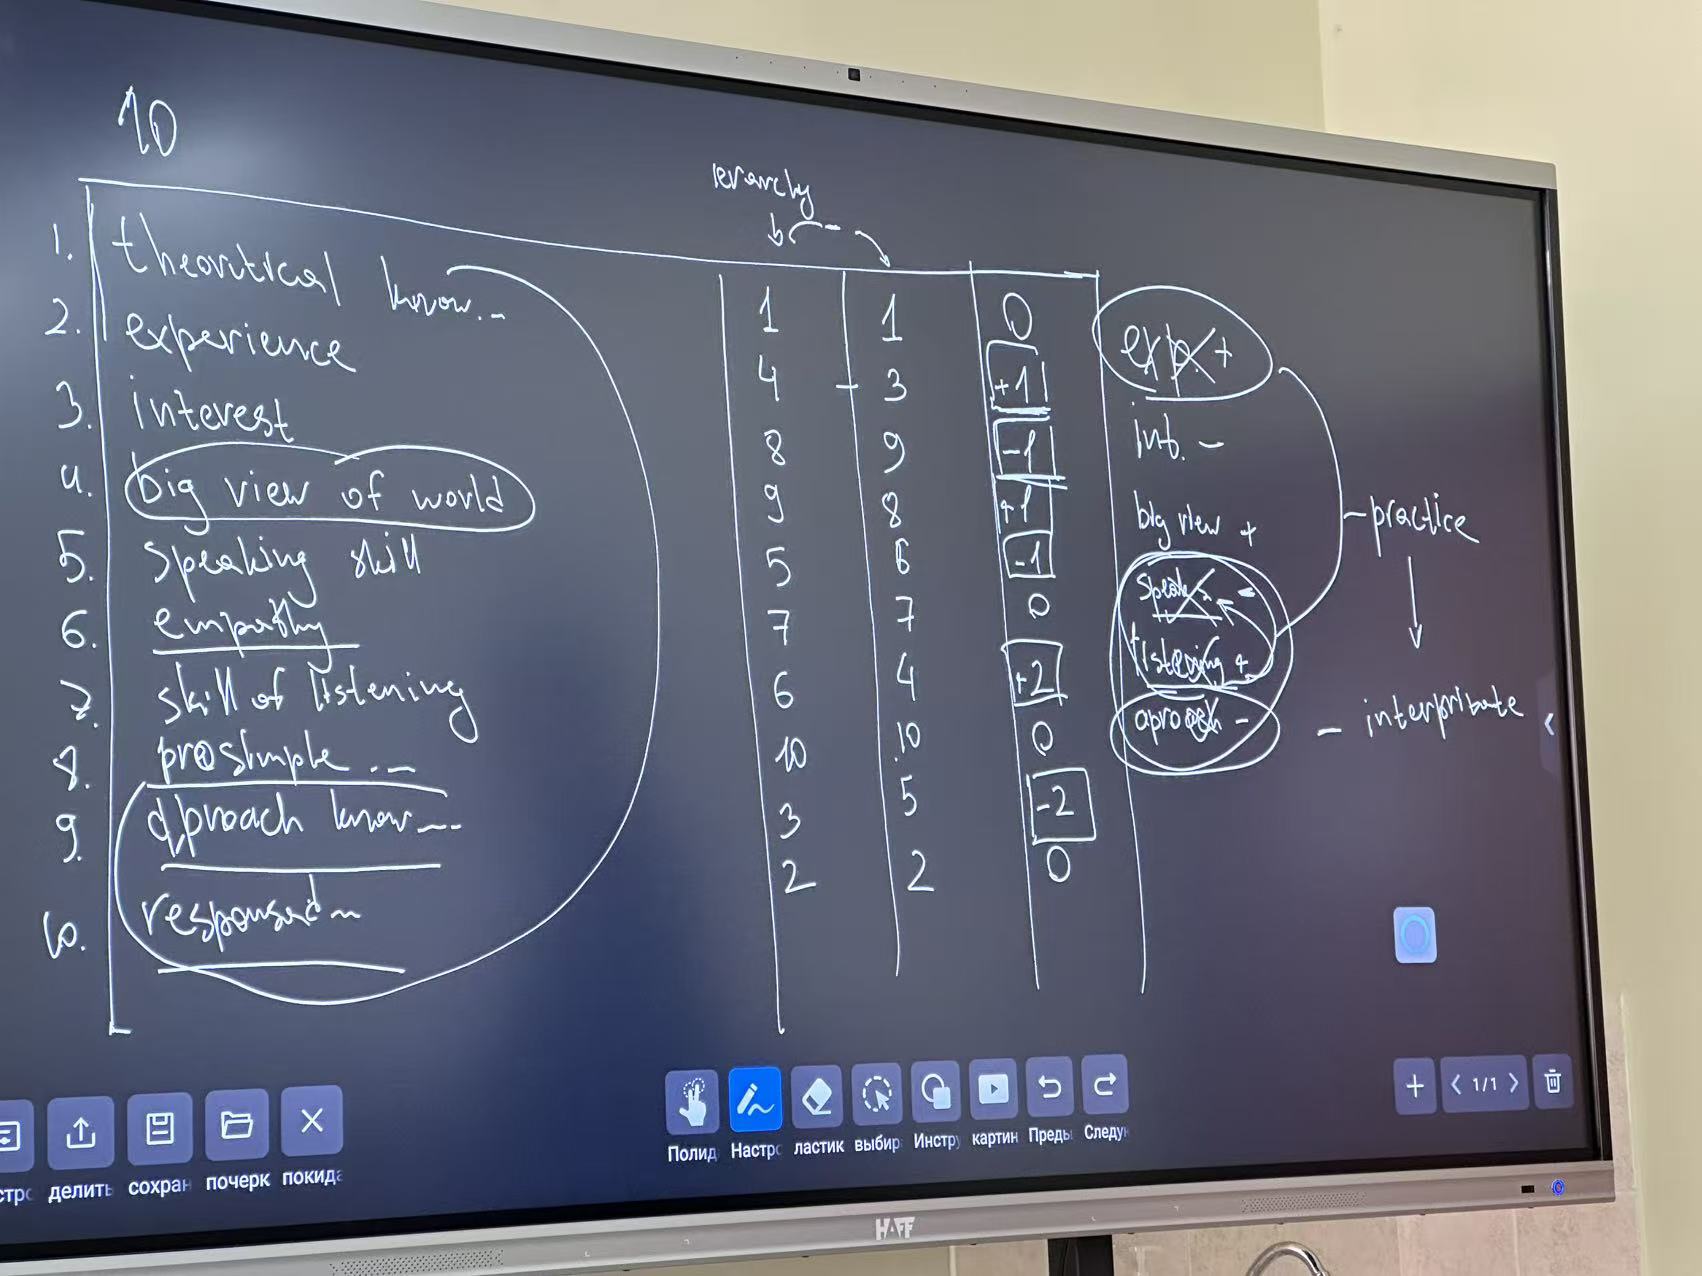 10
ierarchy
1. theoritical know... 1 1 0
2. experience 4 - 3 +1 exp. +
3. interest 8 9 -1 int. -
4. big view of world 9 8 +1 big view + - practice
5. speaking skill 5 6 -1 speak. -
6. empathy 7 7 0 listening +
7. skill of listening 6 4 +2 aproach - - interpritate
8. prosimple... 10 10 0
9. aproach know... 3 5 -2
10. 2 2 0
делить
сохран
почерк
покида
Полид
Настро
ластик
выбир
Инстру
картин
Преды
Следун
1/1
HAFF